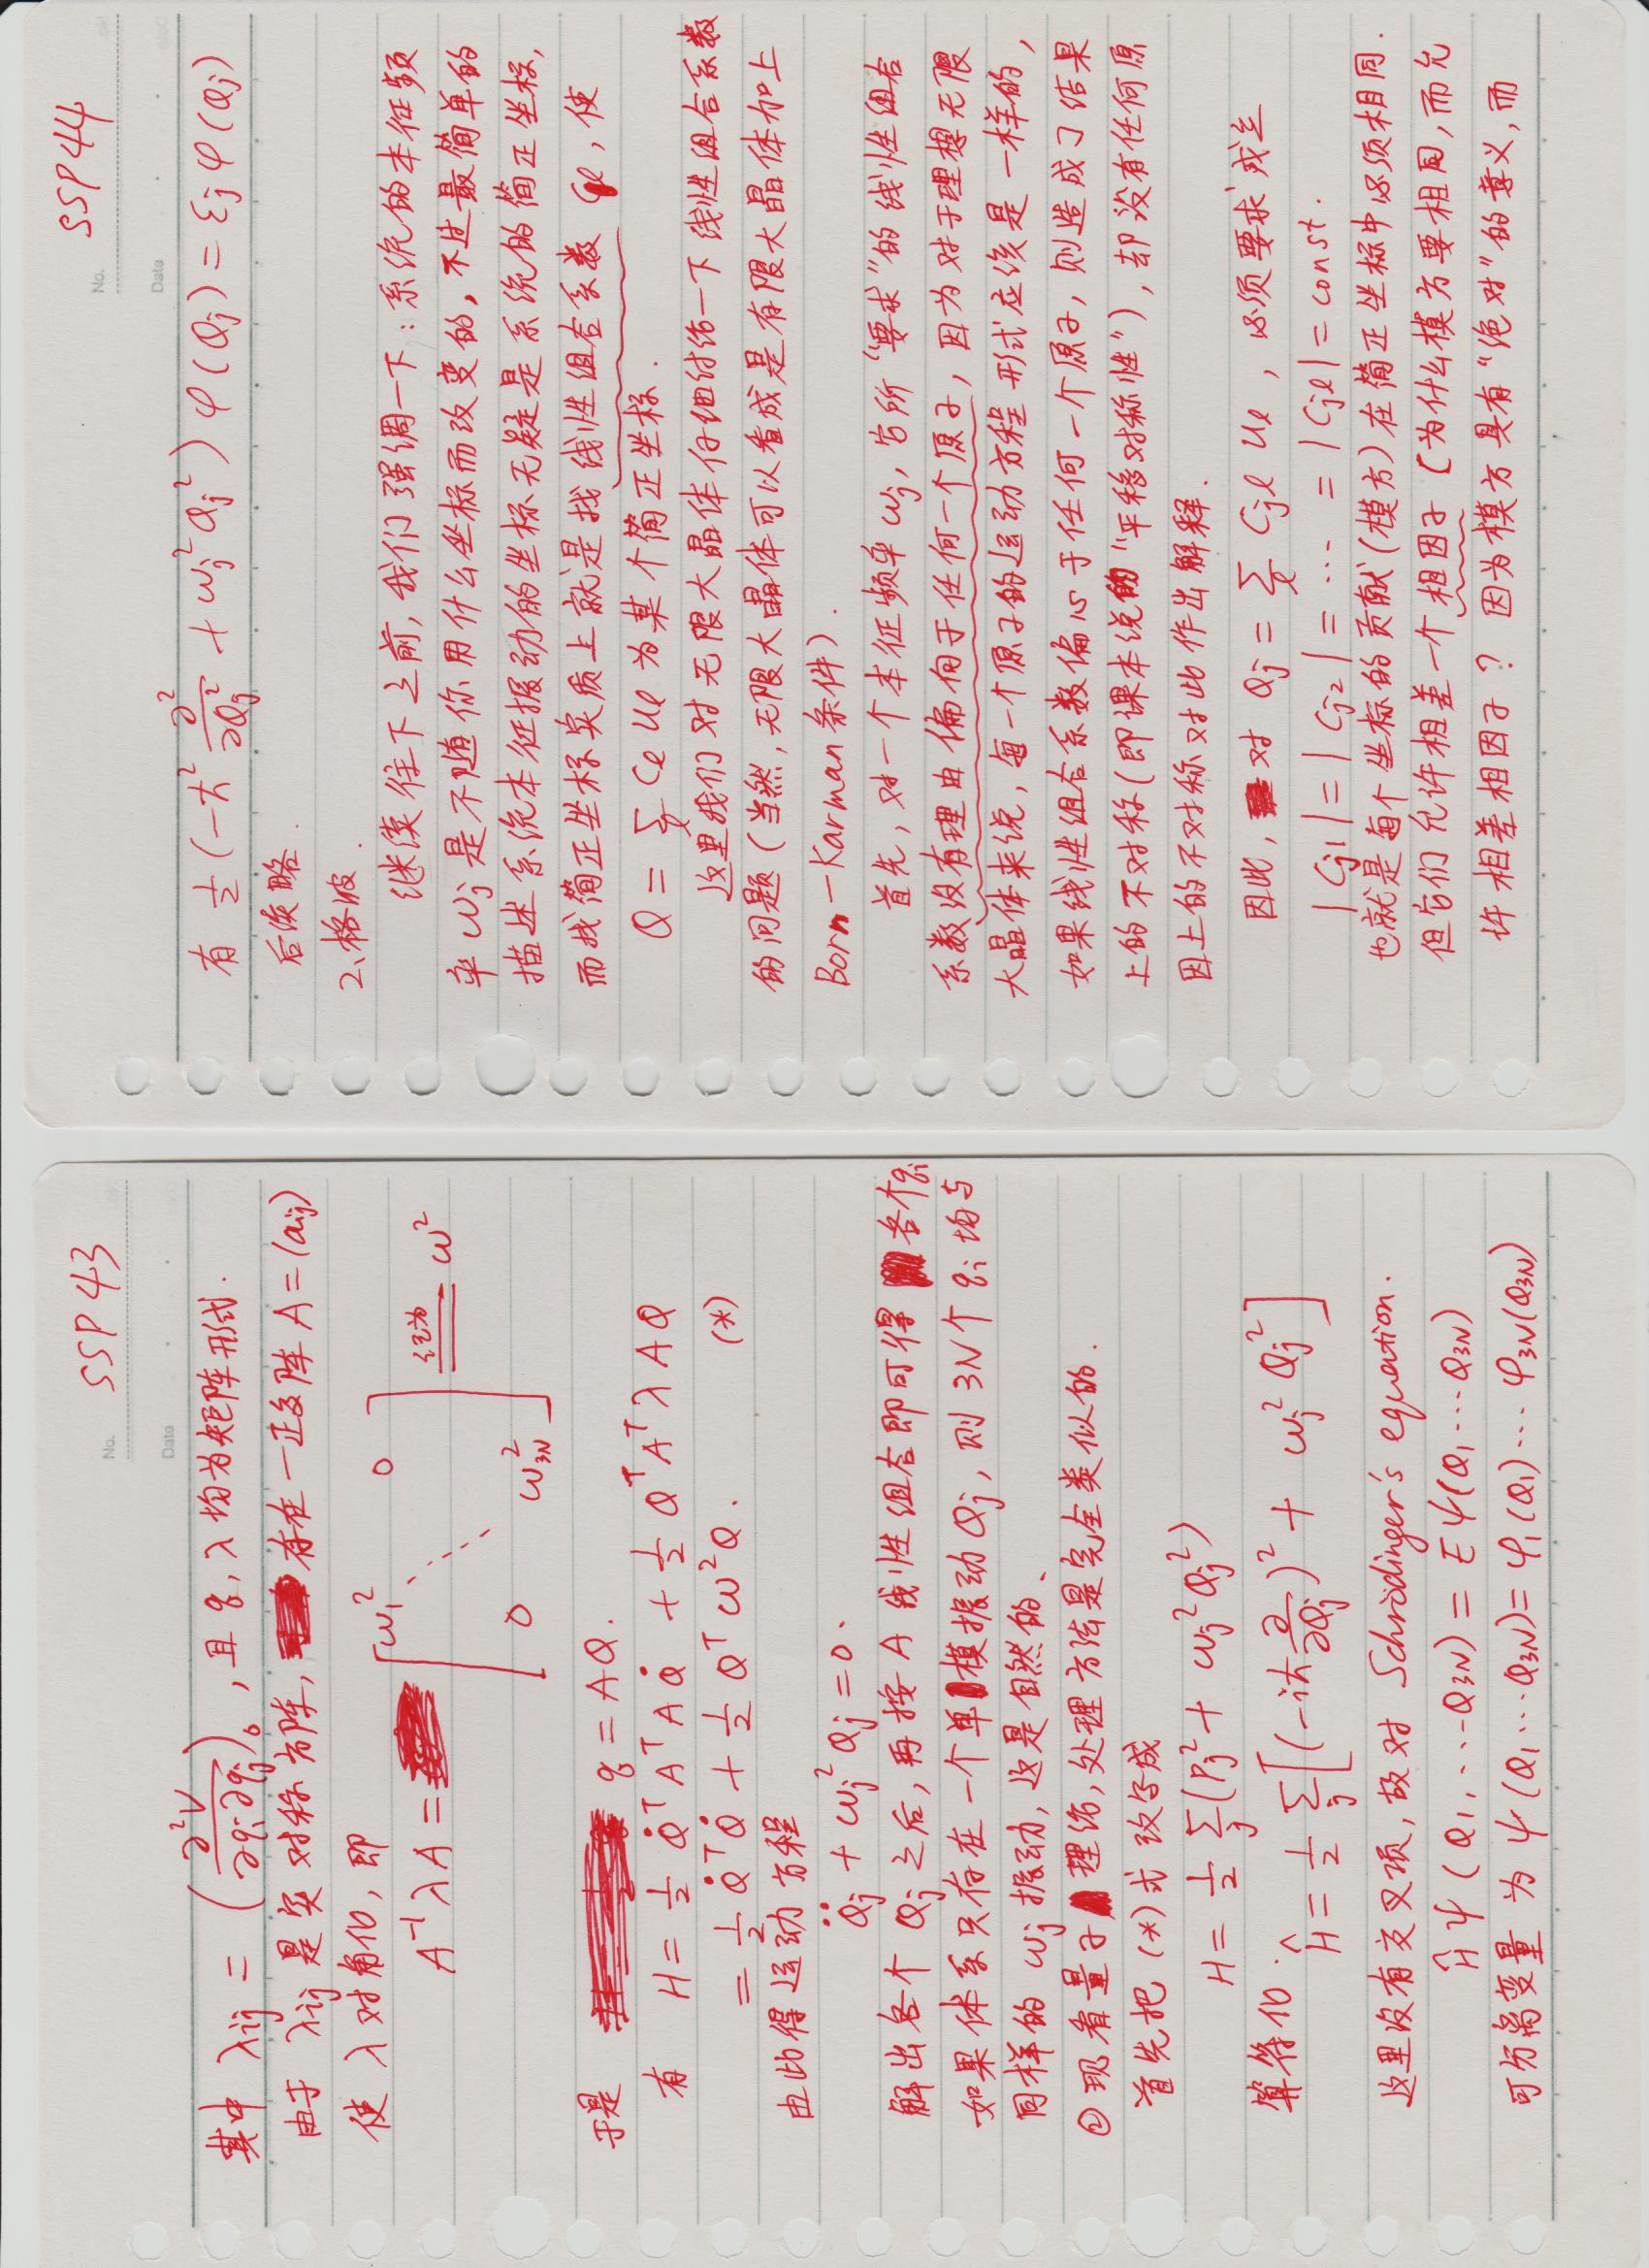 No. SSP 43
Date
其中 λij = (∂²V/∂qi∂qj)₀ , 且 q, λ 均为矩阵形式.
由于 λij 是实对称方阵, 存在一正交阵 A = (aij)
使 λ 对角化, 即
A⁻¹ λ A = [ω₁² 0 ⋱ 0 ω3N²] 记为 ω²
于是 q = AQ.
有 H = ½ Q̇ᵀ Aᵀ A Q̇ + ½ Qᵀ Aᵀ λ A Q
= ½ Q̇ᵀ Q̇ + ½ Qᵀ ω² Q. (*)
由此得运动方程
Q̈j + ωj² Qj = 0.
解出各个 Qj 之后, 再按 A 线性组合即可得 各个qi
如果体系只存在一个单模振动 Qj, 则 3N个 qi 均与
同样的 ωj 振动, 这是自然的、
② 现看量子理论, 处理方法是完全类似的.
首先把 (*) 式 改写成
H = ½ Σj (Pj² + ωj² Qj²)
算符化.
Ĥ = ½ Σj [(-iħ ∂/∂Qj)² + ωj² Qj²]
这里没有交叉项, 故对 Schrödinger's equation.
Ĥψ (Q1, ··· Q3N) = Eψ(Q1 ··· Q3N)
可分离变量 为 ψ (Q1 ··· Q3N) = φ1(Q1) ··· φ3N(Q3N)
No. SSP 44
Date
有 ½ (-ħ² ∂²/∂Qj² + ωj² Qj²) φ(Qj) = εj φ(Qj)
后续略.
2、格波.
继续往下之前, 我们强调一下: 系统的本征频
率 ωj 是不随你用什么坐标而改变的, 不过最简单的
描述系统本征振动的坐标无疑是系统的简正坐标,
而找简正坐标实质上就是找线性组合系数 Cl, 使
Q = Σl Cl Ul 为某个简正坐标.
这里我们对无限大晶体仔细讨论一下线性组合系数
的问题 (当然, 无限大晶体可以看成是有限大晶体加上
Born-Karman 条件).
首先, 对一个本征频率 ωj, 它所“要求”的线性组合
系数没有理由偏向于任何一个原子, 因为对于理想无限
大晶体来说, 每一个原子的运动方程形式应该是一样的,
如果线性组合系数偏心于任何一个原子, 则造成了结果
上的不对称 (即课本说的“平移对称性”), 却没有任何原
因上的不对称对此作出解释.
因此, 对 Qj = Σl Cjl Ul , 必须要求成立
|Cj1| = |Cj2| = ··· = |Cjl| = const.
也就是每个坐标的贡献(模方)在简正坐标中必须相同.
但它们允许相差一个相因子 (为什么模方要相同, 而允
许相差相因子? 因为模方具有“绝对”的意义, 而